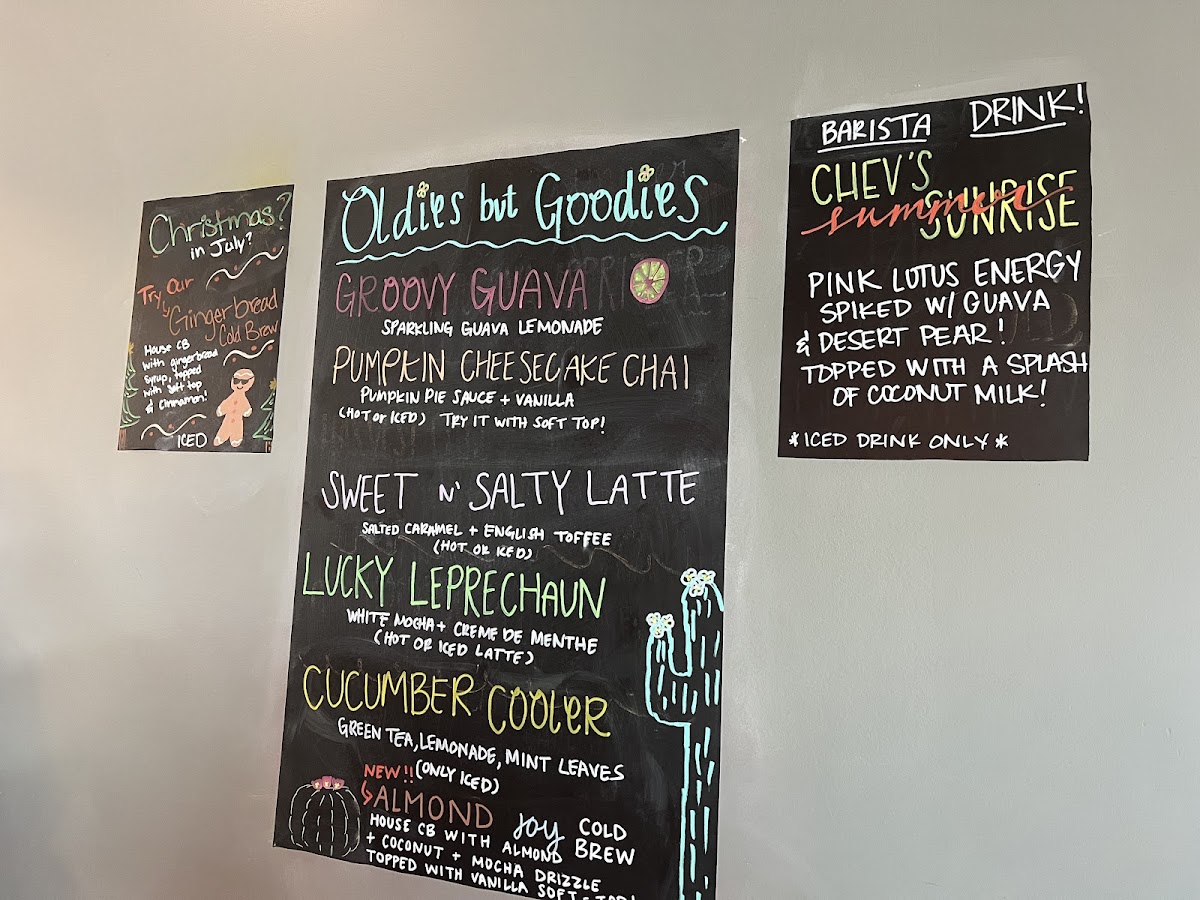 Christmas?
in July?
Try our
Gingerbread
Cold Brew
House CB
with gingerbread
syrup, topped
with soft top
& cinnamon!
ICED
Oldies but Goodies
GROOVY GUAVA
SPARKLING GUAVA LEMONADE
PUMPKIN CHEESECAKE CHAI
PUMPKIN PIE SAUCE + VANILLA
(HOT or ICED) TRY IT WITH SOFT TOP!
SWEET N' SALTY LATTE
SALTED CARAMEL + ENGLISH TOFFEE
(HOT OR ICED)
LUCKY LEPRECHAUN
WHITE MOCHA + CREME DE MENTHE
(HOT OR ICED LATTE)
CUCUMBER COOLER
GREEN TEA, LEMONADE, MINT LEAVES
(ONLY ICED)
NEW!!
ALMOND JOY COLD BREW
HOUSE CB WITH ALMOND
+ COCONUT + MOCHA DRIZZLE
TOPPED WITH VANILLA SOFT-TOP!
BARISTA DRINK!
CHEV'S
summer SUNRISE
PINK LOTUS ENERGY
SPIKED W/ GUAVA
& DESERT PEAR!
TOPPED WITH A SPLASH
OF COCONUT MILK!
*ICED DRINK ONLY*